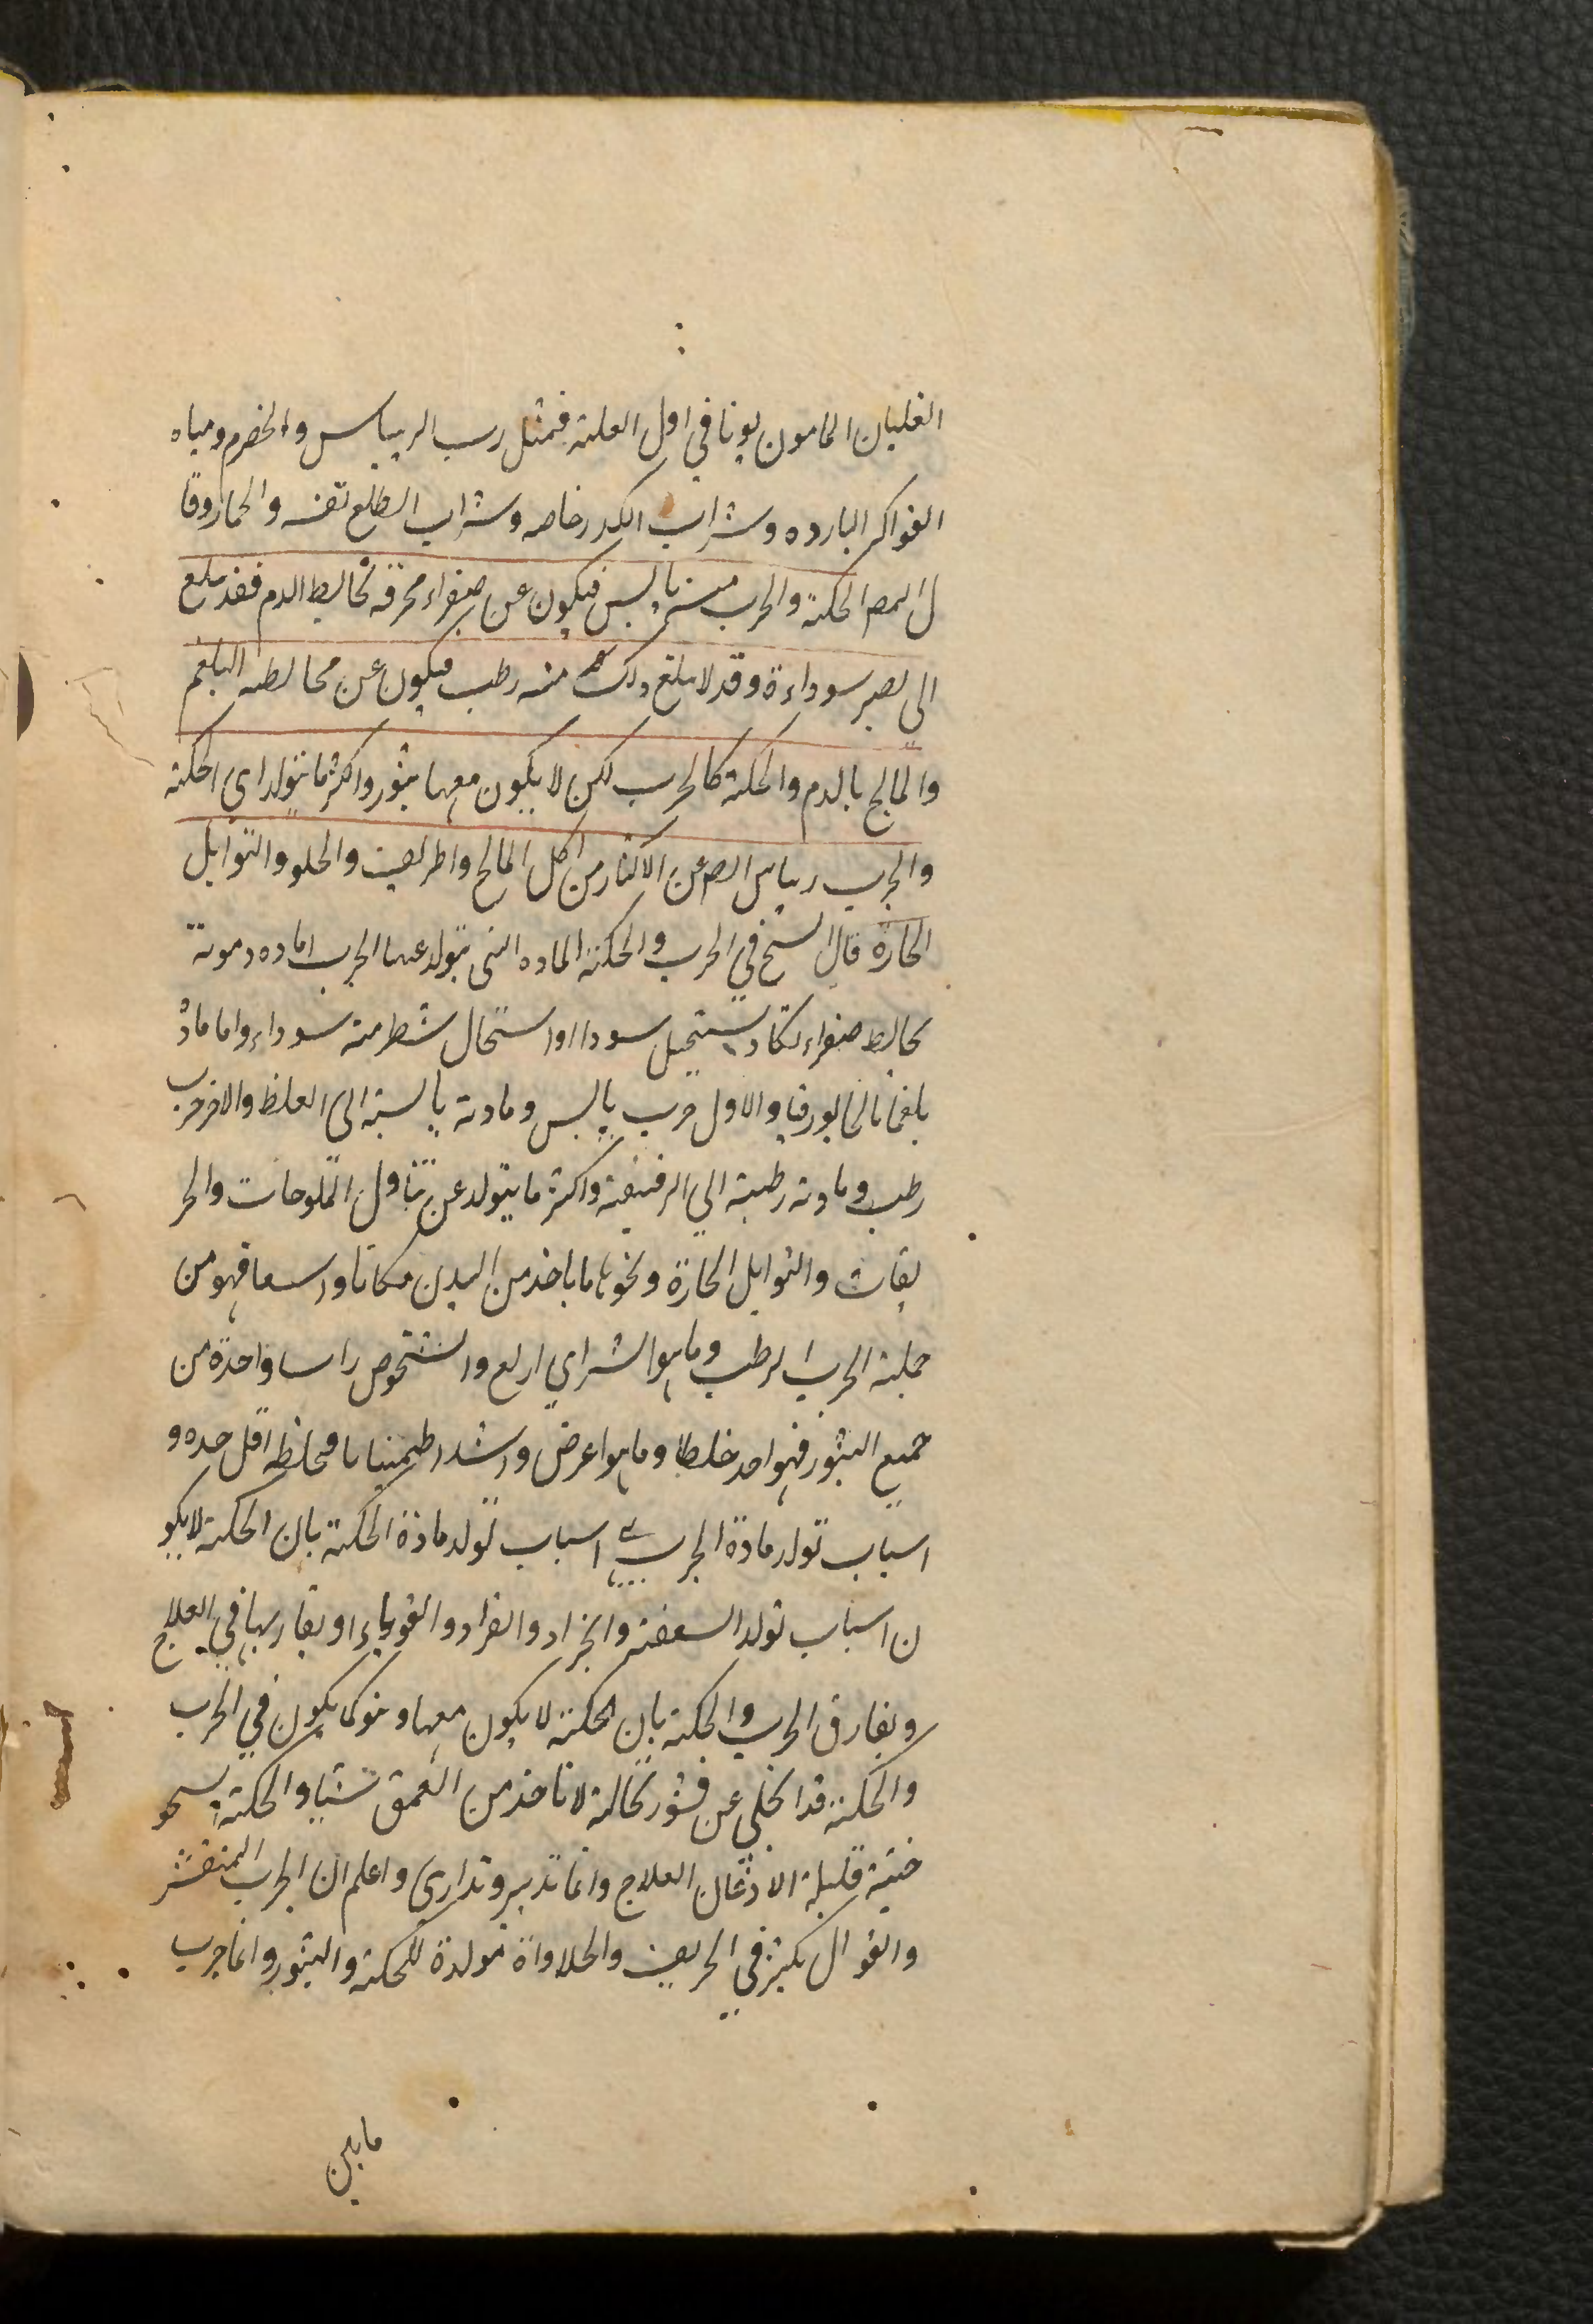 الغليان المامون يونا في اول العلة فمثل رب الريباس والحضرم ومياه
الفواكه البارده وشراب الكدر خاصه وشراب الطلع نفسه والحما وقا
ل المص الحكة والجرب منه يابس فيكون عن صفراء محرقه تخالط الدم فقد بلغ
الى يصير سوداءة وقد لا يبلغ ذلك منه رطب فيكون عن مخالطه البلغم
والمالح بالدم والحكة كالجرب لكن لا يكون معها بثور واكثر ما يتولد اي الحكة
والجرب عن الاكثار من اكل المالح والحلو والتوابل
الحارة قال الشيخ في الجرب والحكة الماده التي يتولد عنها الجرب اماده دموية
تخالط صفراء تكاد يستحيل سودا او استحال شطر منه سوداء واما مادة
بلغما مالحا بورقيا والاول جرب يابس ومادته يابسة الى الغلظ والاخر جرب
رطب ومادته رطبة الى الرقيقة واكثر ما يتولد عن تناول الملوحات والحر
يفات والتوابل الحارة ونحوها ما ياخذ من البدن مكانا واسعا فهو من
جملة الجرب الرطب وما هو اشراي ارفع واشخوص راسا واحدة من
جميع البثور فهو احد خلطا وما هو اعرض واشد اطمينانا فخلطه اقل حده و
اسباب تولد مادة الجرب اسباب تولد مادة الحكة بان الحكة لا يكو
ن اسباب تولد السعفة والحزاز والقوباء او يقاربها في العلاج
ويفارق الجرب والحكة بان الحكة لا يكون معها كما يكون في الجرب
والحكة قد انحلى عن قشور نخالة لا تاخذ من العمق شيا والحكة
خية قليلة الاذعان العلاج وانما تدبر وتدارى واعلم ان الجرب المتقشر
والفوال يكثر في الخريف والحلاواة مولدة للحكة والبثور وانما جرب
مابين